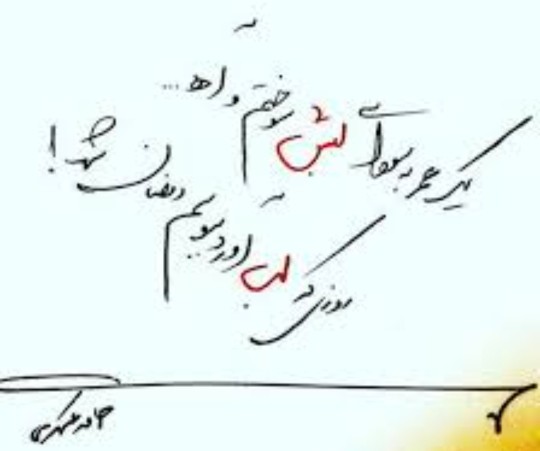 یک عمر به سودای لبش سوختم و آه...
روزی که لب آورد ببوسم رمضان شد!
حامد عسکری